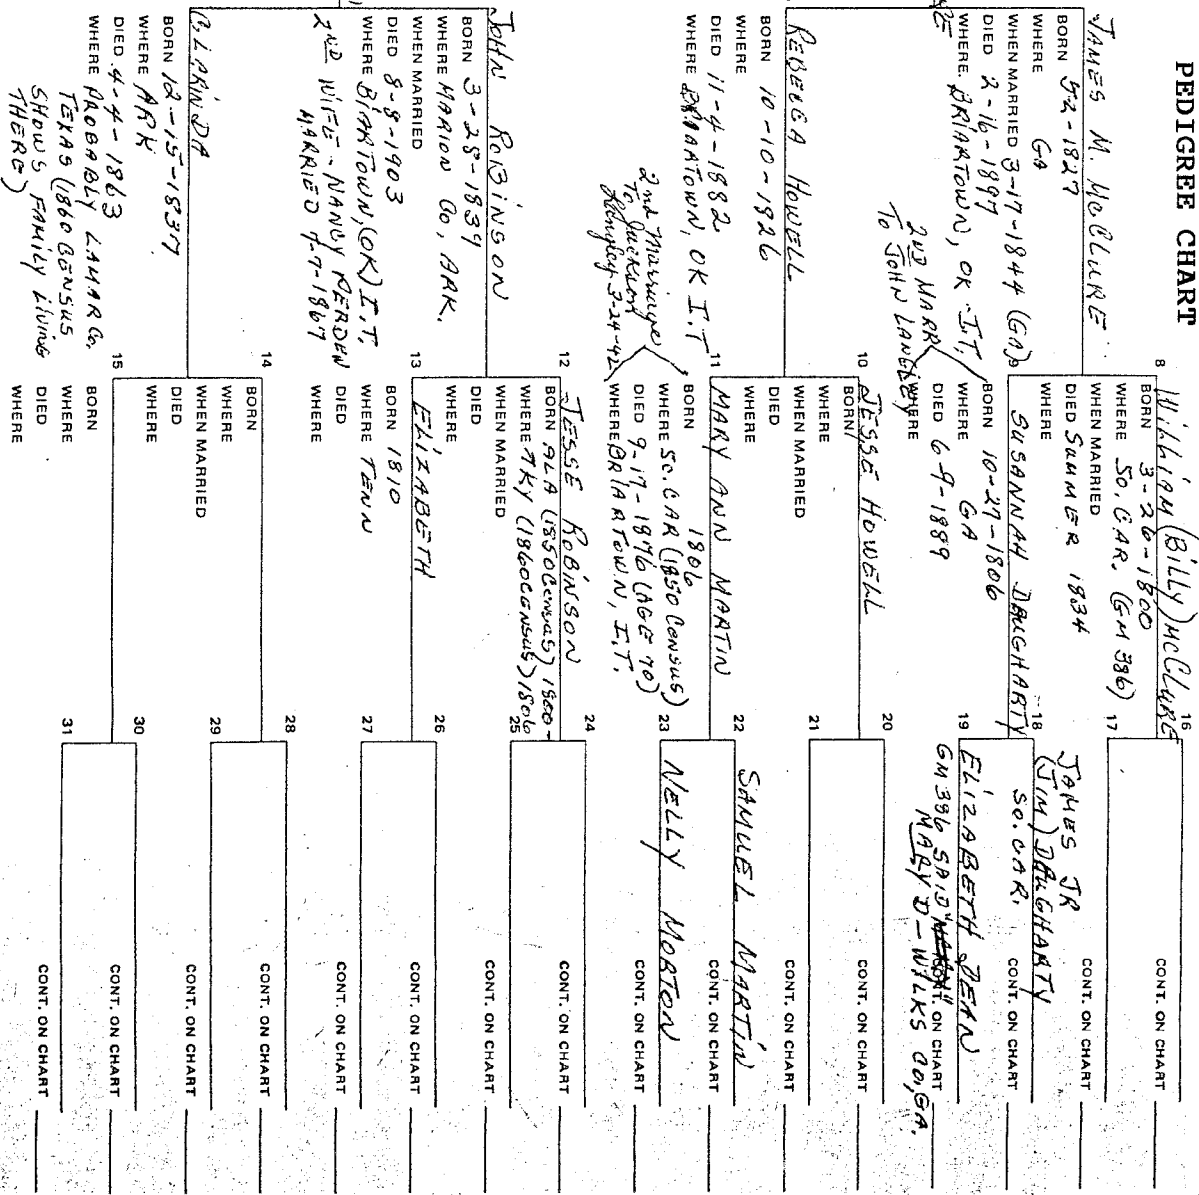 PEDIGREE CHART
JAMES M. McCLURE
BORN 5-2-1827
WHERE GA
WHEN MARRIED 3-17-1844 (GA)
DIED 2-16-1897
WHERE BRIARTOWN, OK I.T.
REBECCA HOWELL
BORN 10-10-1826
WHERE
DIED 11-4-1882
WHERE BRIARTOWN, OK I.T
JOHN ROBINSON
BORN 3-28-1839
WHERE MARION CO, ARK.
WHEN MARRIED
DIED 8-8-1903
WHERE BRIARTOWN, (OK) I.T.
2ND WIFE - NANCY PERDEN
MARRIED 7-7-1867
CLARINDA
BORN 12-15-1837
WHERE ARK
DIED 4-4-1863
WHERE PROBABLY LAMAR CO,
TEXAS (1860 CENSUS
SHOWS FAMILY LIVING
THERE)
8
William (Billy) McCLURE
BORN 3-26-1800
WHERE SO. CAR. (GM 386)
WHEN MARRIED
DIED SUMMER 1834
WHERE
9
SUSANNAH DAUGHARTY
BORN 10-27-1806
WHERE GA
DIED 6-9-1889
WHERE
2ND MARR
TO JOHN LANGLEY
10
JESSE HOWELL
BORN
WHERE
WHEN MARRIED
DIED
WHERE
11
MARY ANN MARTIN
BORN 1806
WHERE SO. CAR (1850 Census)
DIED 9-17-1876 (AGE 70)
WHERE BRIARTOWN, I.T.
2nd Marriage
To Jackson
Langley 3-24-42
12
JESSE ROBINSON
BORN ALA (1850 Census) 1800-
WHERE KY (1860 CENSUS) 1806
WHEN MARRIED
DIED
WHERE
13
ELIZABETH
BORN 1810
WHERE TENN
DIED
WHERE
14
BORN
WHERE
WHEN MARRIED
DIED
WHERE
15
BORN
WHERE
DIED
WHERE
16
CONT. ON CHART
17
CONT. ON CHART
18
JAMES JR
(JIM) DAUGHARTY
SO. CAR.
CONT. ON CHART
19
ELIZABETH DEAN
GM 386 SAID
MARY D - WILKS CO, GA.
CONT. ON CHART
20
CONT. ON CHART
21
CONT. ON CHART
22
SAMUEL MARTIN
CONT. ON CHART
23
NELLY MORTON
CONT. ON CHART
24
CONT. ON CHART
25
CONT. ON CHART
26
CONT. ON CHART
27
CONT. ON CHART
28
CONT. ON CHART
29
CONT. ON CHART
30
CONT. ON CHART
31
CONT. ON CHART